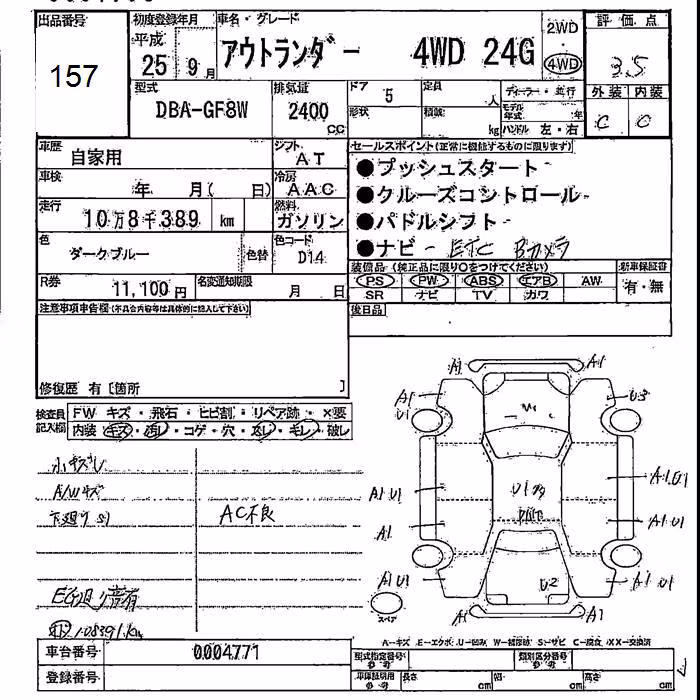 出品番号
157
初度登録年月
平成
25年9月
車名・グレード
アウトランダー 4WD 24G
2WD
4WD
評価点
3.5
外装 内装
C C
型式
DBA-GF8W
排気量
2400
cc
ドア
5
形状
定員
人
積載
kg
ディーラー・並行
モデル年式 年
ハンドル 左・右
車歴
自家用
シフト
AT
車検
年 月( 日)
冷房
AAC
走行
10万8千389 km
燃料
ガソリン
色
ダークブルー
色替
色コード
D14
R券
11,100円
名変通知期限
月 日
セールスポイント(正常に機能するものに限ります)
●プッシュスタート
●クルーズコントロール
●パドルシフト
●ナビ ETC Bカメラ
装備品(純正品に限り○をつけてください)
PS PW ABS エアB AW
SR ナビ TV カワ
新車保証書
有・無
後日品
注意事項申告欄(不具合内容等は具体的に記入して下さい)
修復歴 有〔箇所 〕
検査員記入欄
FW キズ・飛石・ヒビ割・リペア跡・×要
内装 キズ・汚レ・コゲ・穴・スレ・キレ・破レ
小キズU
A/Wキズ
下廻りS1
AC不良
108391km
A1 A1
A1 U1
U3
A1 U1
A1 U1
A1
A1 U1
A1 U1
A1 U1
U2
A1 A1
スペア
A-キズ E-エクボ U-凹み W-補修跡 S-サビ C-腐食 XX-交換済
車台番号
0004771
登録番号
型式指定番号
参考
類別区分番号
参考
車庫証明用
参考
長さ cm 幅 cm 高さ cm